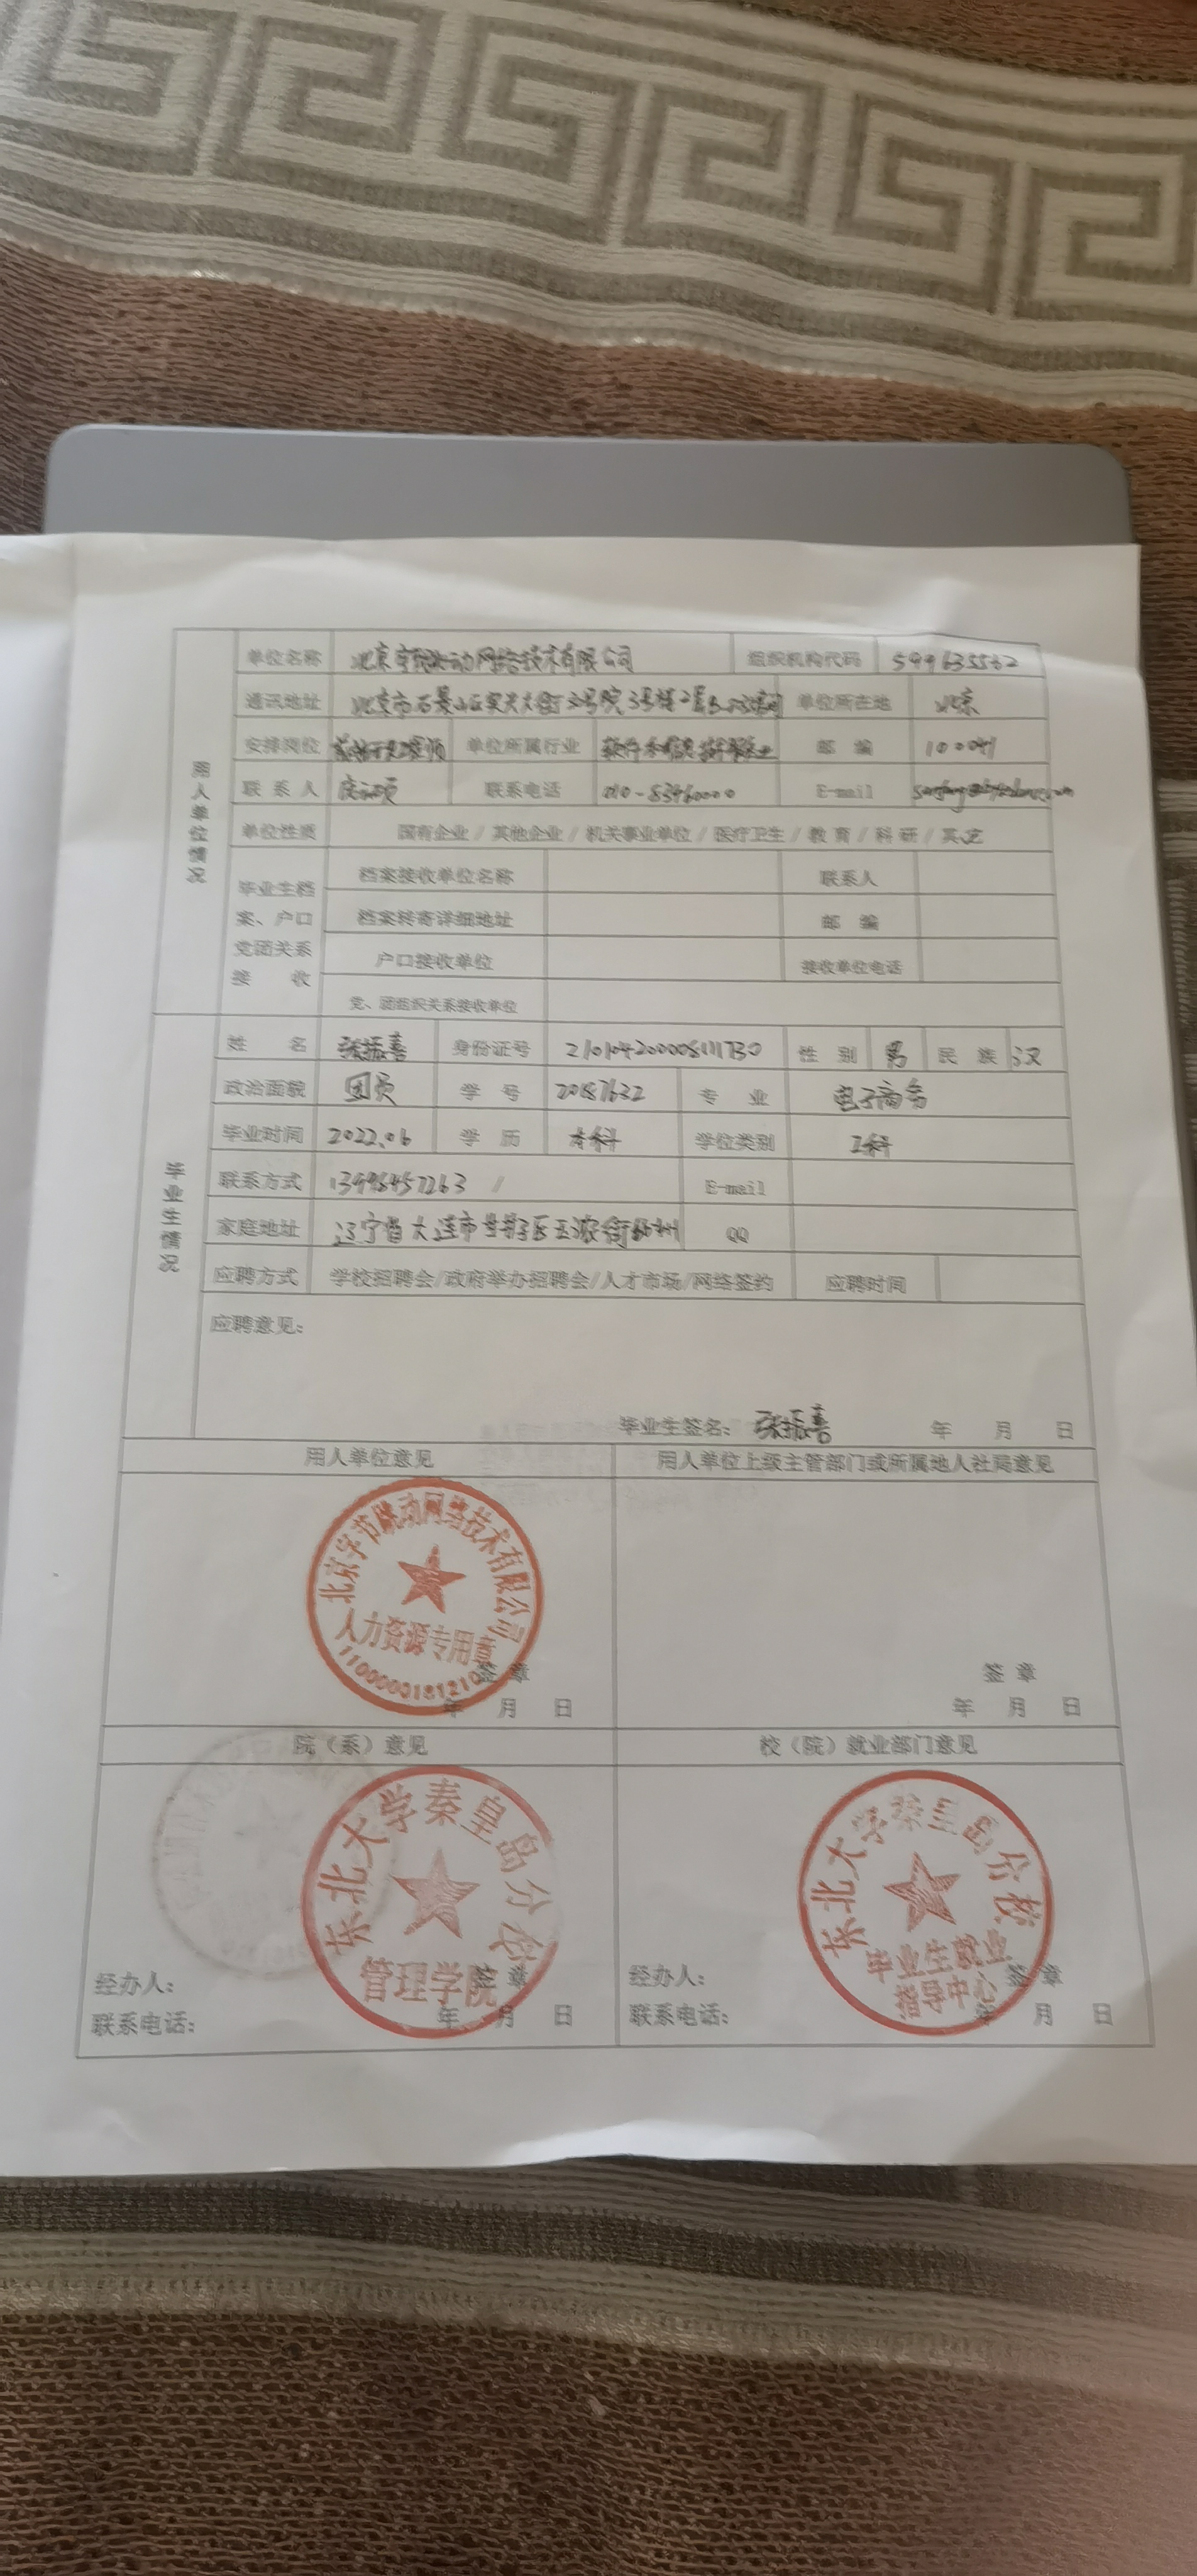 用人单位情况
单位名称 北京字节跳动网络技术有限公司 组织机构代码 599635562
通讯地址 北京市石景山区实兴大街 号院3号楼2层 单位所在地 北京
安排岗位 单位所属行业 软件和信息 邮 编 100041
联 系 人 联系电话 010-83460000 E-mail
单位性质 国有企业 / 其他企业 / 机关事业单位 / 医疗卫生 / 教 育 / 科 研 / 其它
毕业生档案、户口党团关系接 收
档案接收单位名称 联系人
档案转寄详细地址 邮 编
户口接收单位 接收单位电话
党、团组织关系接收单位
毕业生情况
姓 名 张振喜 身份证号 性 别 男 民 族 汉
政治面貌 团员 学 号 20187632 专 业 电子商务
毕业时间 2022.06 学 历 本科 学位类别 工科
联系方式 13998457263 / E-mail
家庭地址 辽宁省大连市 QQ
应聘方式 学校招聘会/政府举办招聘会/人才市场/网络签约 应聘时间
应聘意见:
毕业生签名: 张振喜 年 月 日
用人单位意见 用人单位上级主管部门或所属地人社局意见
北京字节跳动网络技术有限公司
人力资源专用章
签 章 签 章
年 月 日 年 月 日
院（系）意见 校（院）就业部门意见
东北大学秦皇岛分校 东北大学秦皇岛分校
管理学院 毕业生就业
指导中心
经办人: 签 章 经办人: 签 章
联系电话: 年 月 日 联系电话: 年 月 日